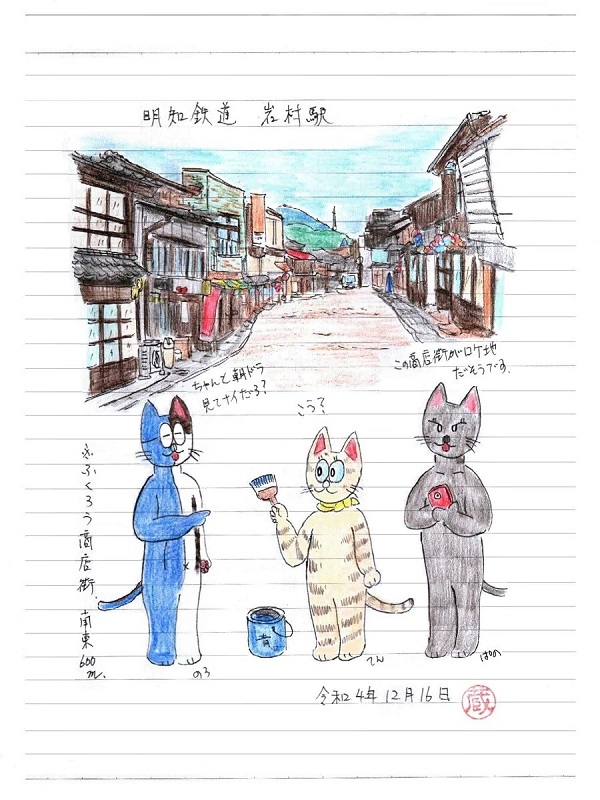 明知鉄道 岩村駅
ちゃんと朝ドラ
見てナイだろ?
この商店街がロケ地
だそうです。
こう?
ふくろう商店街、南東600m.
青
のろ
てん
はの
令和4年12月16日
蔵